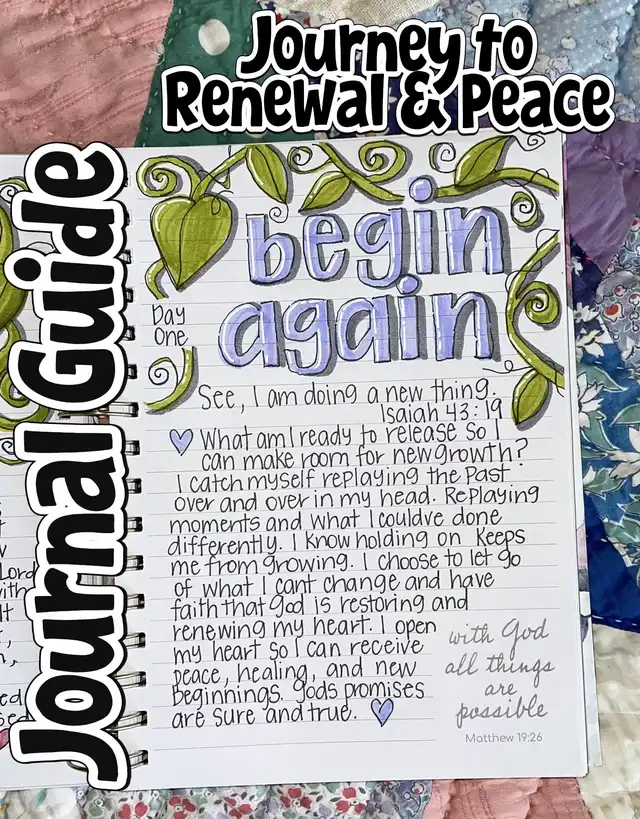 Journey to
Renewal & Peace
Journal Guide
begin
again
Day
One
See, I am doing a new thing.
Isaiah 43:19
What am I ready to release so I
can make room for new growth?
I catch myself replaying the past
over and over in my head. Replaying
moments and what I couldve done
differently. I know holding on keeps
me from growing. I choose to let go
of what I cant change and have
faith that god is restoring and
renewing my heart. I open
my heart so I can receive
peace, healing, and new
beginnings. gods promises
are sure and true.
with God
all things
are
possible
Matthew 19:26
Lord